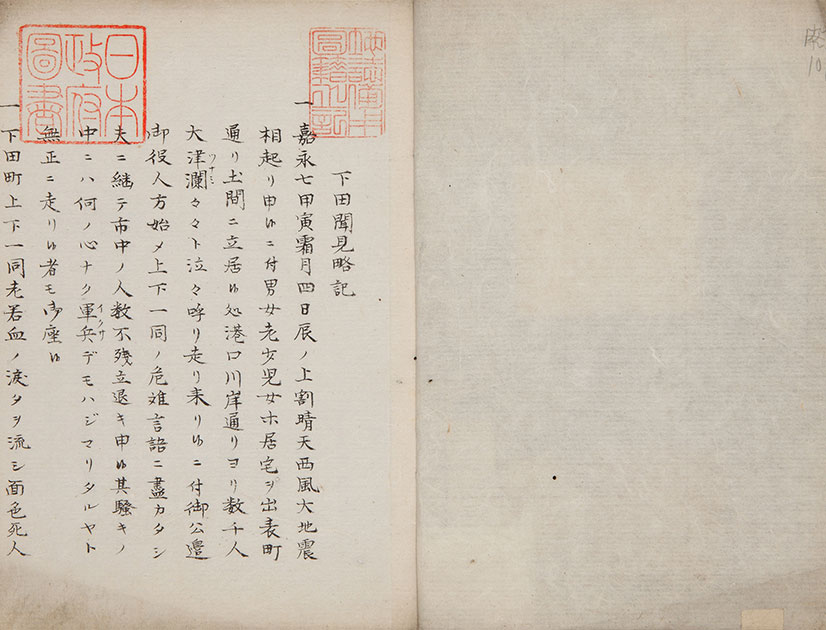 下田聞見略記
一嘉永七甲寅霜月四日辰ノ上割晴天西風大地震
相起リ申候ニ付男女老少児女ホ居宅ヲ出表町
通リ土間ニ立居候処港口川岸通リヨリ数千人
大津瀾々々ト泣々呼リ走リ来リ候ニ付御公邉
ツナミ
御役人方始メ上下一同ノ危難言語ニ盡カタシ
夫ニ継テ市中ノ人数不残立退キ申候其騒キノ
中ニハ何ノ心ナク軍兵デモハジマリタルヤト
イクサ
無正ニ走リ候者モ御座候
一下田町上下一同老若血ノ涙タヲ流シ面色死人
日本
政府
圖書
10